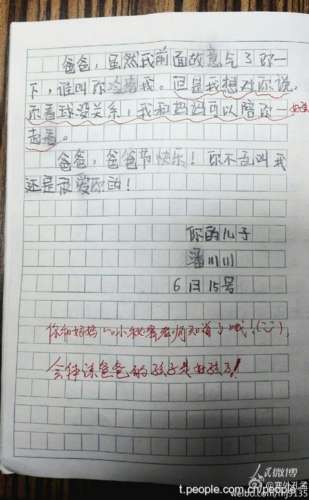 爸爸，虽然我前面故意气了你一
下，谁叫你冷落我。但是我想对你说，
你看球没关系，我和妈妈可以陪你一
起看。
爸爸，爸爸节快乐！你不
还是很爱你的！
你的儿子
潘川川
6月15号
你和妈妈的小秘密老师知道了哦！
会体谅爸爸的孩子是好孩子！
人民微博
t.people.com.cn/people
weibo.com